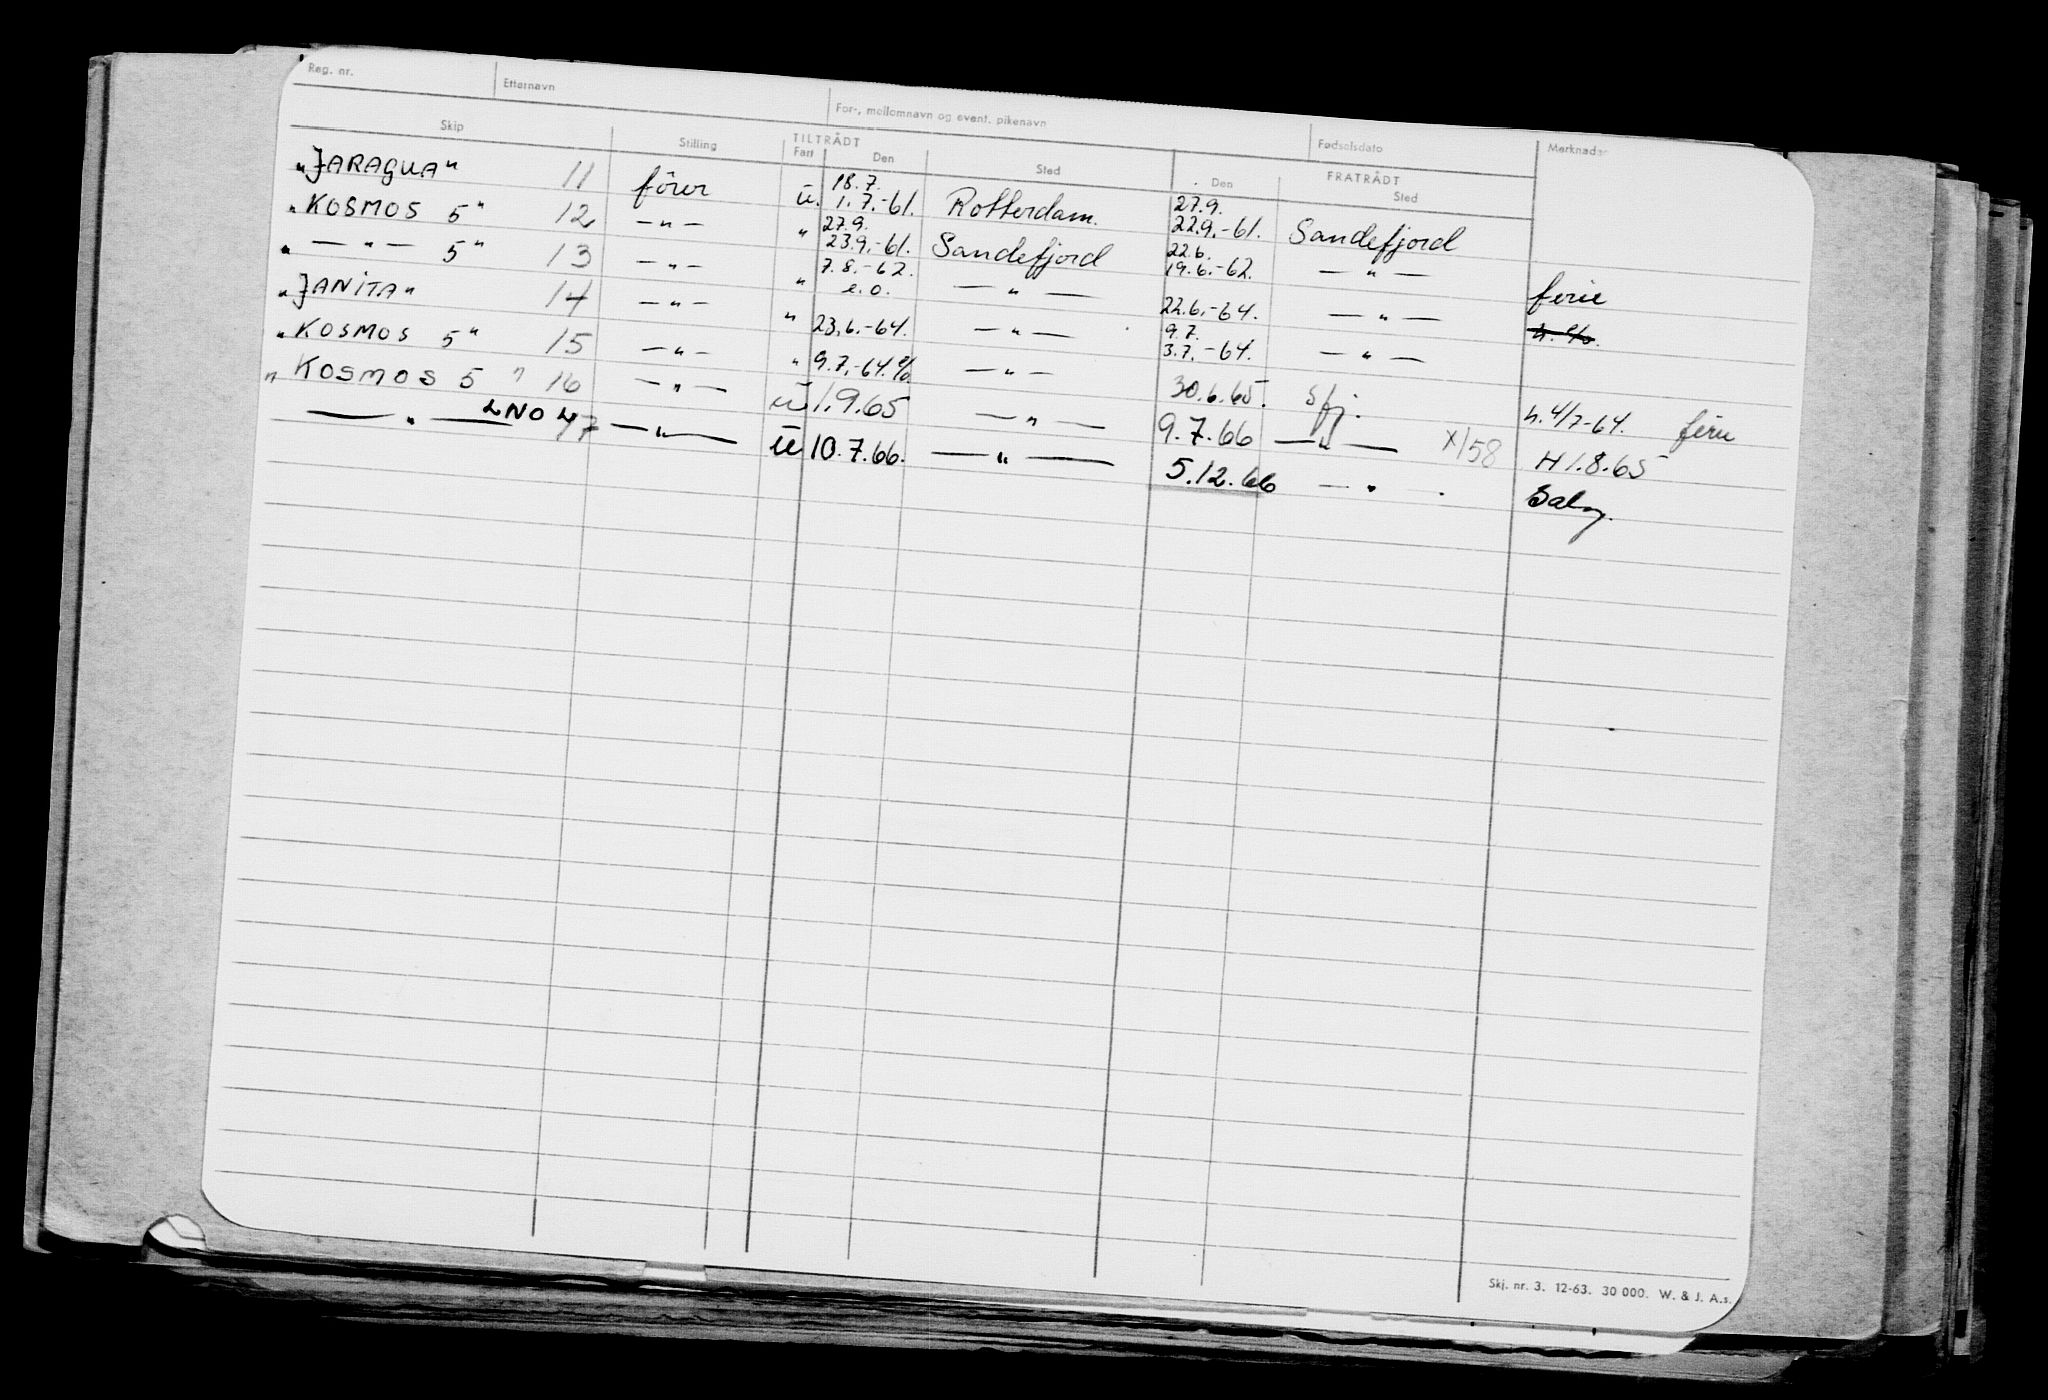 Reg. nr. Etternavn For-, mellomnavn og event. pikenavn Fødselsdato Merknader
Skip Stilling TILTRÅDT FRATRÅDT
Fart Den Sted Den Sted
„JARAGUA" 11 förer u. 18.7. 1.7.-61. Rotterdam. 27.9. 22.9.-61. Sandefjord
„KOSMOS 5" 12 —„— „ 27.9. 23.9.-61. Sandefjord 22.6. 19.6.-62. —„—
„—„— 5" 13 —„— „ 7.8.-62. e.o. —„— 22.6.-64. —„— ferie
„JANITA" 14 —„— „ 23.6.-64. —„— 9.7. 3.7.-64. —„—
„KOSMOS 5" 15 —„— „ 9.7.-64. —„— 30.6.65. Sfj. h. 4/7-64. ferie
„KOSMOS 5" 16 —„— u 1.9.65 —„— 9.7.66 —„— X/58 H 1.8.65
—„— LNOH 17 —„— u 10.7.66. —„— 5.12.66 —„— Salg.
Skj. nr. 3. 12-63. 30 000. W. & J. A.s.